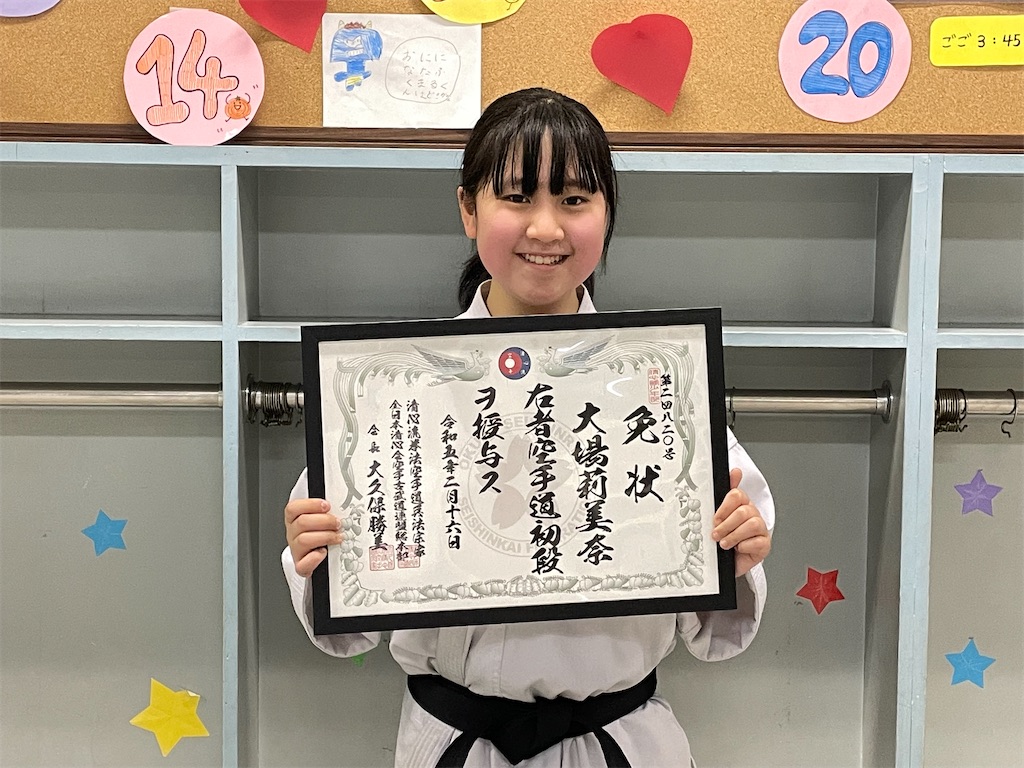 14
おにに
なたふ
くまるく
んはどこ
20
ごご 3:45
第二四八二〇号
免状
大場莉美奈
右者空手道初段
ヲ授与ス
令和五年二月十六日
清心流拳法空手道兵法宗家
全日本清心会空手古武道連盟総本部
会長 大久保勝美
SEISHINKAI